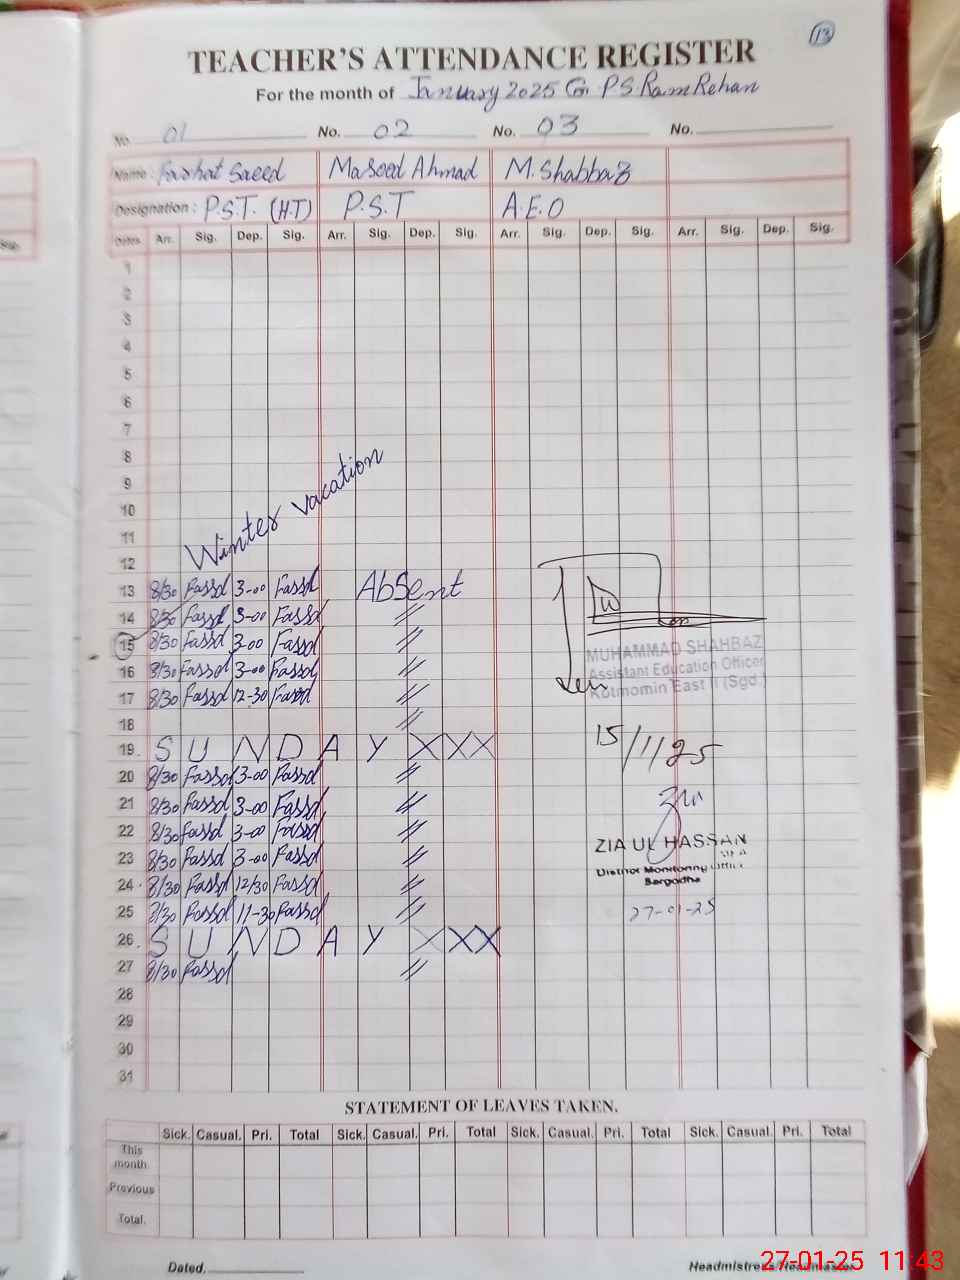 13
TEACHER'S ATTENDANCE REGISTER
For the month of January 2025 G P.S Ram Rehan
No. 01 No. 02 No. 03 No.
Name: Farhat Saeed Masood Ahmad M. Shabbaz
Designation: P.S.T. (H.T) P.S.T A.E.O
Dates Arr. Sig. Dep. Sig. Arr. Sig. Dep. Sig. Arr. Sig. Dep. Sig. Arr. Sig. Dep. Sig.
1
2
3
4
5
6
7
8
9
10
11
Winter vacation
12
13 8/30 Fassd 3-00 Fassd Absent
14 8/30 Fassd 3-00 Fassd "
15 8/30 Fassd 3-00 Fassd "
16 8/30 Fassd 3-00 Fassd "
17 8/30 Fassd 12-30 Fassd "
18 "
MUHAMMAD SHAHBAZ
Assistant Education Officer
Kotmomin East II (Sgd.)
15/1/25
19. SUNDAY XXX
20 8/30 Fassd 3-00 Fassd "
21 8/30 Fassd 3-00 Fassd "
22 8/30 Fassd 3-00 Fassd "
23 8/30 Fassd 3-00 Fassd "
24. 8/30 Fassd 12/30 Fassd "
25 8/30 Fassd 11-30 Fassd "
ZIA UL HASSAN
District Monitoring Officer
Sargodha
27-01-25
26. SUNDAY XXX
27 8/30 Fassd "
28
29
30
31
STATEMENT OF LEAVES TAKEN.
Sick. Casual. Pri. Total Sick. Casual. Pri. Total Sick. Casual. Pri. Total Sick. Casual. Pri. Total
This month.
Previous
Total.
Dated. Headmistress/Headmaster
27-01-25 11:43